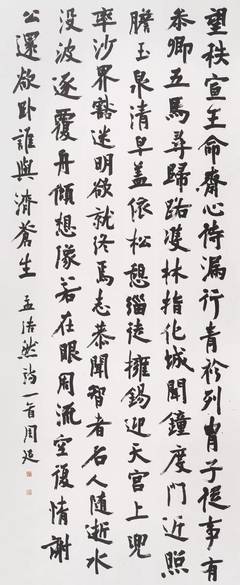 望秩宣王命齋心待漏行青衿列胄子從事有
參卿五馬尋歸路雙林指化城聞鐘度門近照
膽玉泉清皂蓋依松憩緇徒擁錫迎天宫上兜
率沙界豁迷明欲就終焉志恭聞智者名人隨逝水
没波逐覆舟傾想像若在眼周流空復情謝
公還欲卧誰與濟蒼生 孟浩然詩一首周